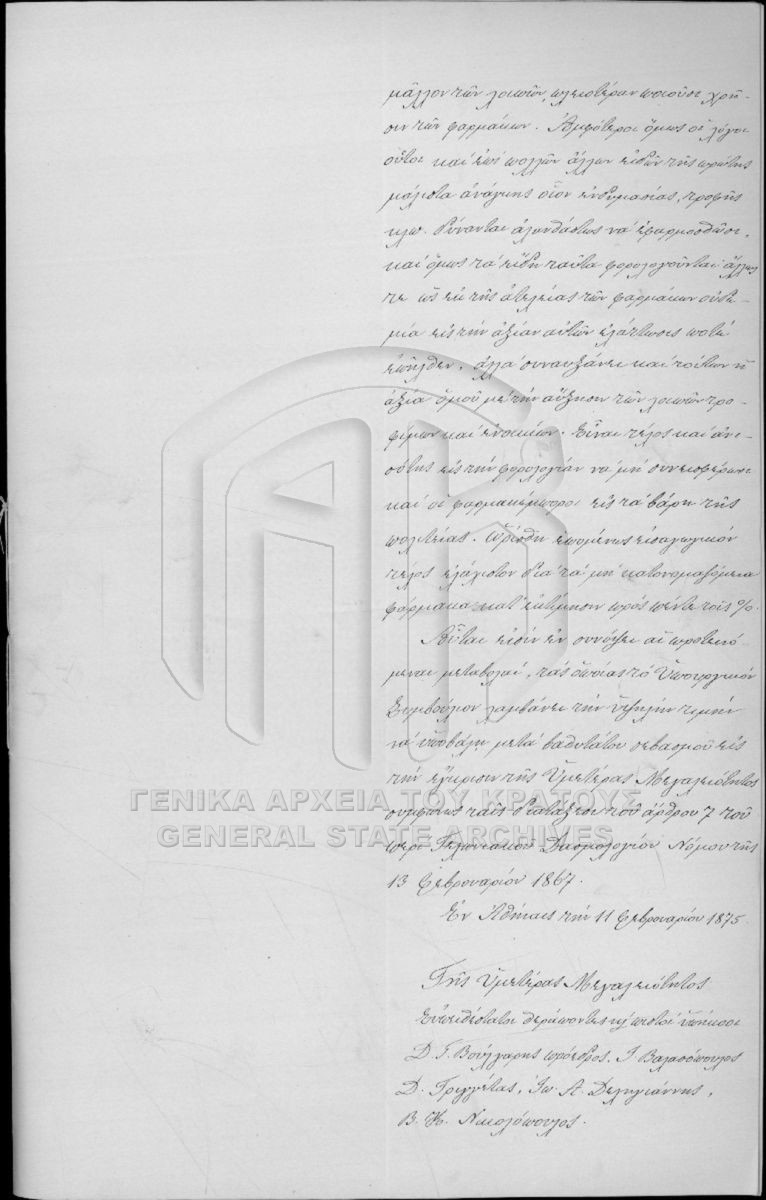 μᾶλλον τῶν λοιπῶν, πλειοτέραν ποιοῦσι χρῆ-
σιν τῶν φαρμάκων. Ἀμφότεροι ὅμως οἱ λόγοι
οὗτοι καὶ ἐπὶ πολλῶν ἄλλων εἰδῶν τῆς πρώτης
μάλιστα ἀνάγκης οἷον ἐνδυμασίας, τροφῆς
κλπ. δύνανται ἀλανθάστως νὰ ἐφαρμοσθῶσι,
καὶ ὅμως τὰ εἴδη ταῦτα φορολογοῦνται· ἄλλως
τε ὡς ἐκ τῆς ἀτελείας τῶν φαρμάκων οὐδε-
μία εἰς τὴν ἀξίαν αὐτῶν ἐλάττωσις ποτὲ
ἐπῆλθεν, ἀλλὰ συναυξάνει καὶ τούτων ἡ
ἀξία ὁμοῦ μὲ τὴν αὔξησιν τῶν λοιπῶν τρο-
φίμων καὶ ἐνοικίων. Εἶναι τέλος καὶ ἀνι-
σότης εἰς τὴν φορολογίαν νὰ μὴ συνεισφέρωσι
καὶ οἱ φαρμακέμποροι εἰς τὰ βάρη τῆς
πολιτείας. Ὡρίσθη ἑπομένως εἰσαγωγικὸν
τέλος ἐλάχιστον διὰ τὰ μὴ κατονομαζόμενα
φάρμακα κατ' ἐκτίμησιν πρὸς πέντε τοῖς %.
Αὗται εἰσὶν ἐν συνόψει αἱ προτεινό-
μεναι μεταβολαί, τὰς ὁποίας τὸ Ὑπουργικὸν
Συμβούλιον λαμβάνει τὴν ὑψηλὴν τιμὴν
νὰ ὑποβάλῃ μετὰ βαθυτάτου σεβασμοῦ εἰς
τὴν ἔγκρισιν τῆς Ὑμετέρας Μεγαλειότητος
συμφώνως ταῖς διατάξεσι τοῦ ἄρθρου 7 τοῦ
περὶ Τελωνιακοῦ Δασμολογίου Νόμου τῆς
13 Φεβρουαρίου 1867.
Ἐν Ἀθήναις τὴν 11 Φεβρουαρίου 1875.
Τῆς Ὑμετέρας Μεγαλειότητος
Εὐπειθέστατοι θεράποντες κ πιστοὶ ὑπήκοοι
Δ. Γ. Βούλγαρης πρόεδρος, Ι. Βαλασόπουλος
Δ. Γριγγέτας, Ἰω. Α. Δεληγιάννης,
Β. Κ. Νικολόπουλος.
ΓΕΝΙΚΑ ΑΡΧΕΙΑ ΤΟΥ ΚΡΑΤΟΥΣ
GENERAL STATE ARCHIVES